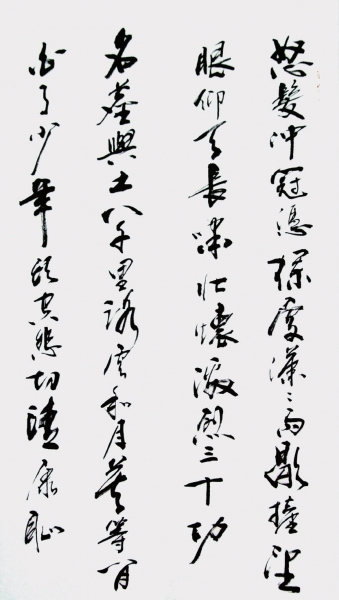 怒髮冲冠憑欄處瀟〻雨歇擡望
眼仰天長嘯壯懷激烈三十功
名塵與土八千里路雲和月莫等閒
白了少年頭空悲切靖康恥